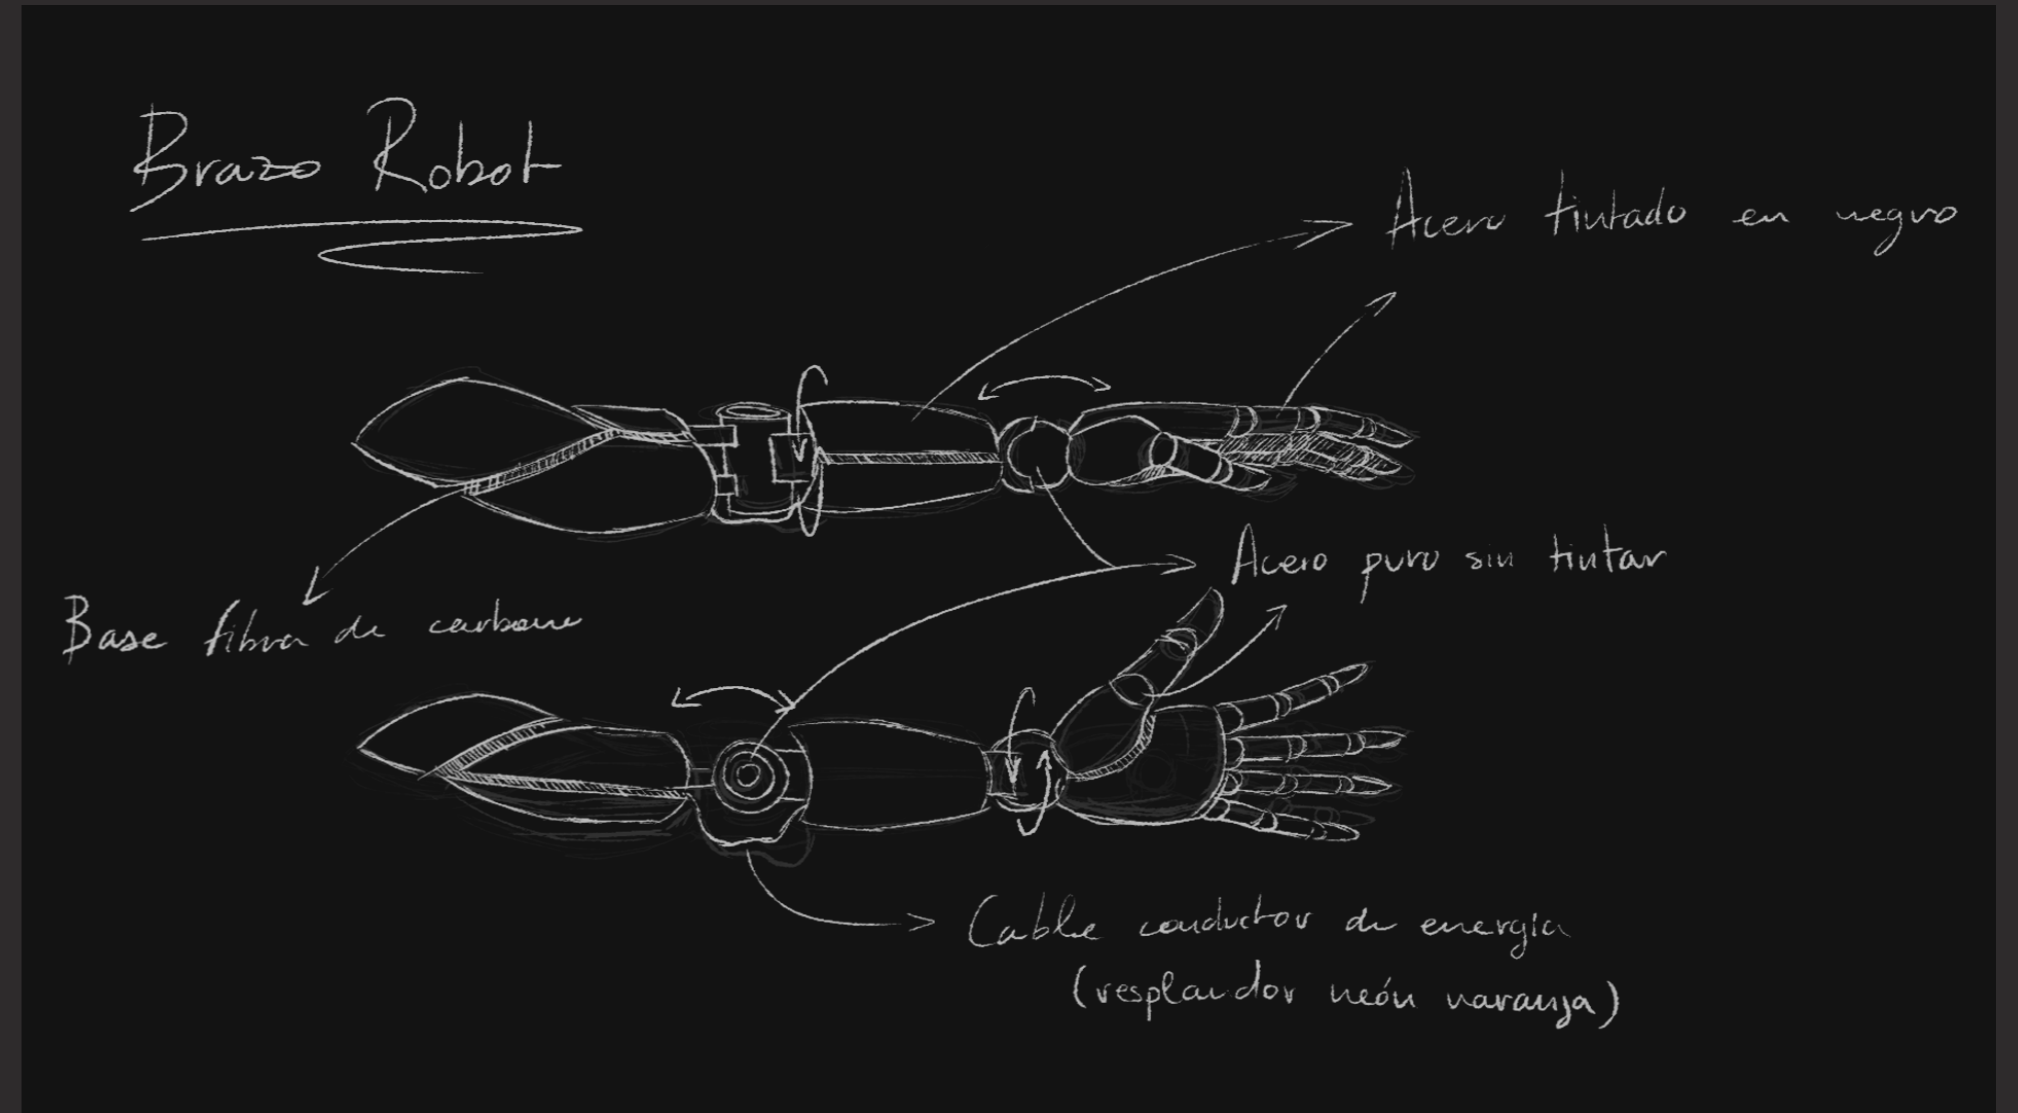 Brazo Robot
Acero tintado en negro
Acero puro sin tintar
Base fibra de carbono
Cable conductor de energía
(resplandor neón naranja)